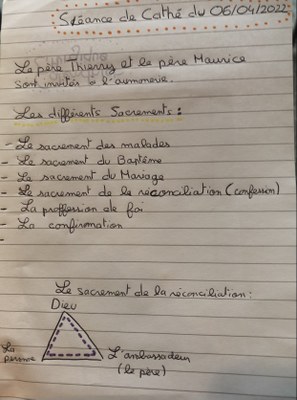 Séance de Cathé du 06/04/2022
Le père Thierry et le père Maurice
sont invités à l'aumonerie.
Les différents Sacrements :
- Le sacrement des malades
- Le sacrement du Baptême
- Le sacrement du Mariage
- Le sacrement de la réconciliation (confession)
- La proffession de foi
- La confirmation
-
Le sacrement de la réconciliation :
Dieu
La personne
L'ambassadeur
(le père)